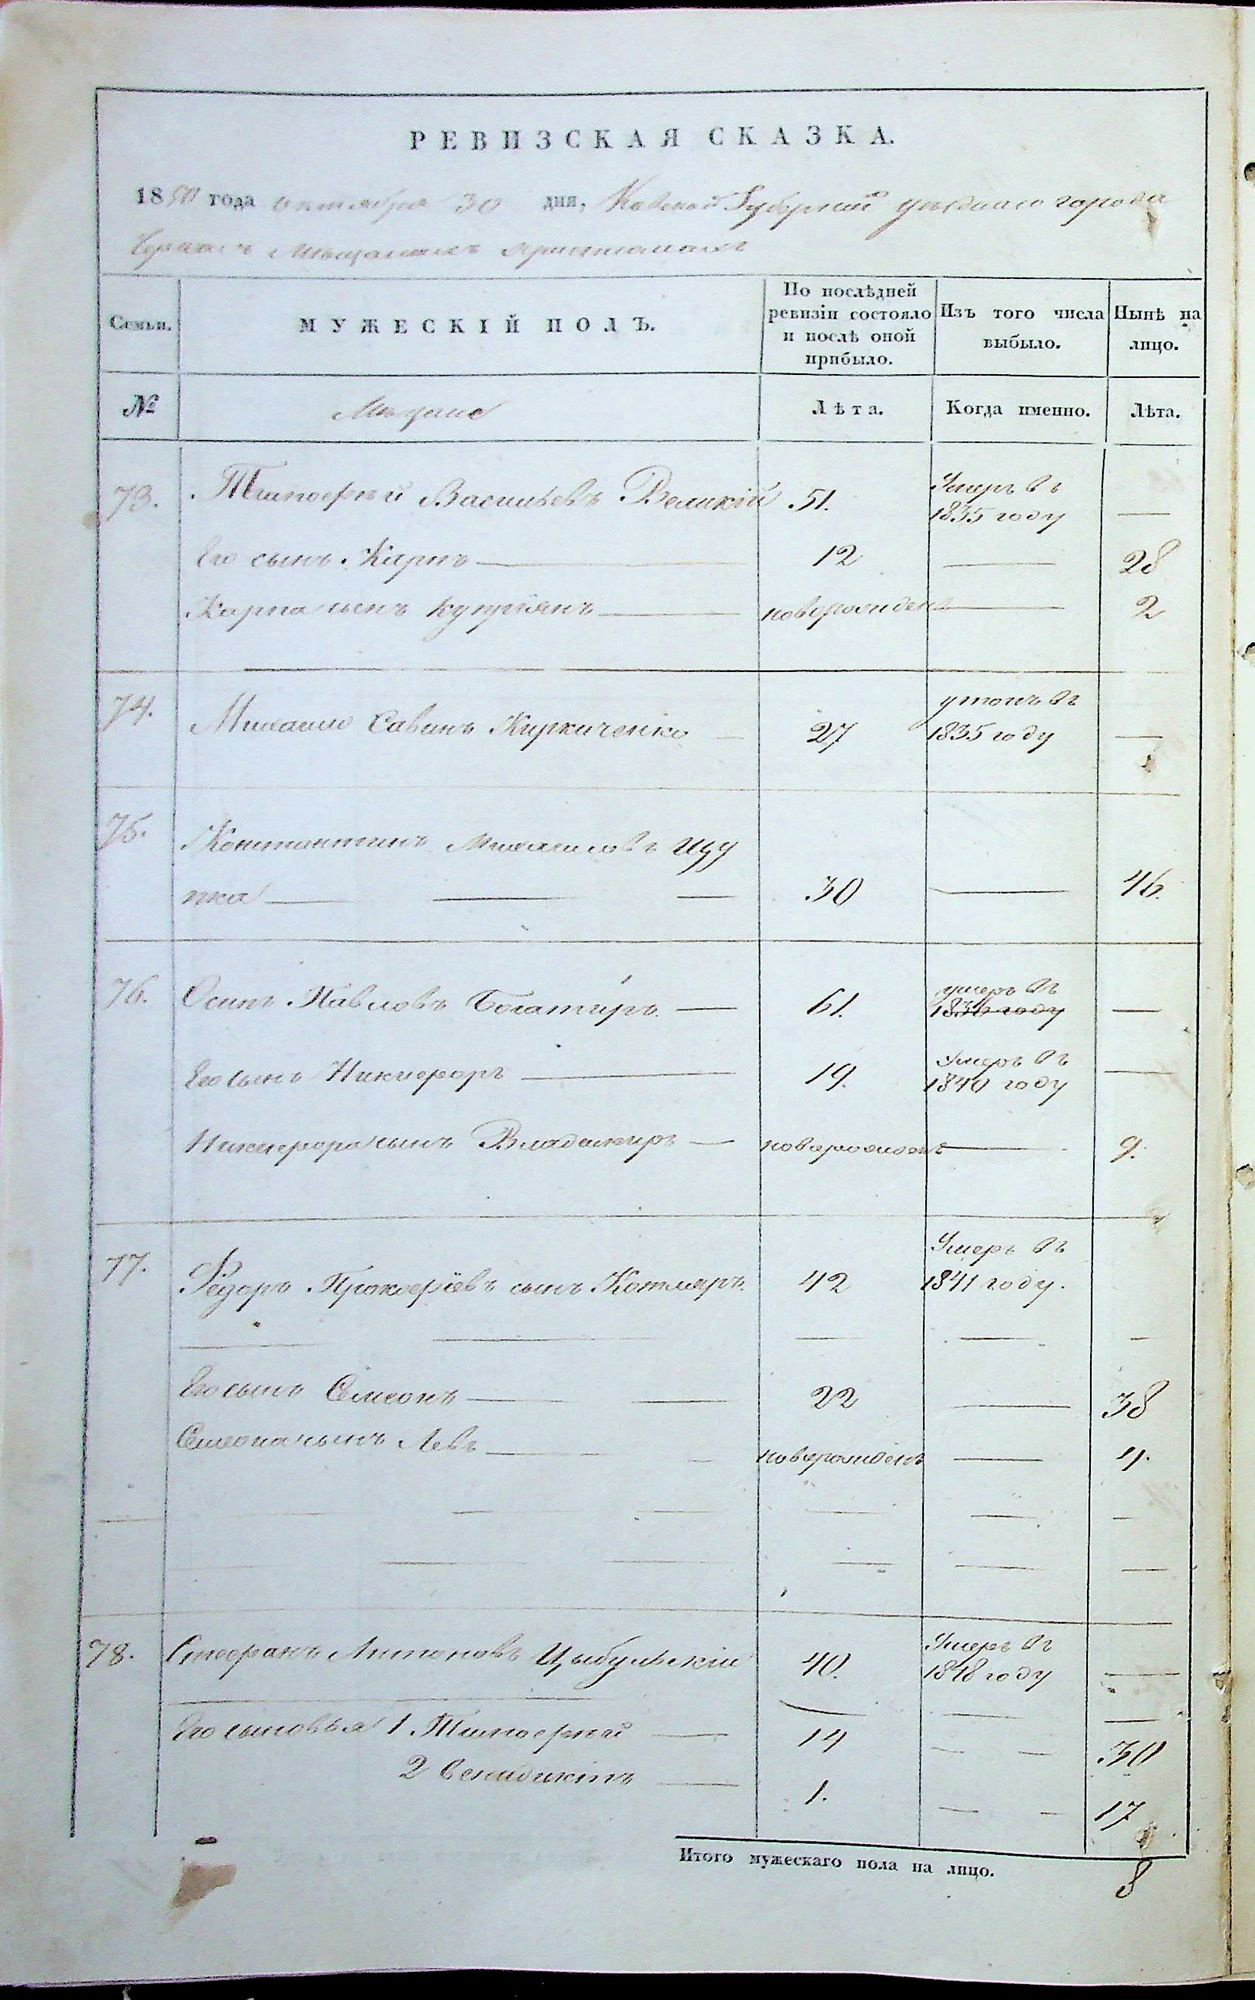 РЕВИЗСКАЯ СКАЗКА.
1850 года октября 30 дня, Киевской Губернии уезднаго города
мещанахъ христианахъ
Семьи. МУЖЕСКІЙ ПОЛЪ. По послѣдней ревизіи состояло и послѣ оной прибыло. Изъ того числа выбыло. Нынѣ на лицо.
№ Мещане Лѣта. Когда именно. Лѣта.
73. Тимофѣй Васильевъ Великій 51. Умеръ въ 1835 году —
Его сынъ Карпъ — 12 — 28
Карпа сынъ Купріянъ — новорожденъ — 2
74. Михаило Савинъ Киркиченко — 27 утопъ въ 1835 году —
75. Константинъ Михаиловъ Цуу
пка — 30 — 46.
76. Осипъ Павловъ Богатиръ — 61. умеръ въ 1836 году —
Его сынъ Никифоръ — 19. Умеръ въ 1840 году —
Никифора сынъ Владимиръ — новорожденъ — 9.
77. Федоръ Прокофіевъ сынъ Котляръ 42 Умеръ въ 1841 году. —
Его сынъ Симеонъ — 22 — 38
Симеона сынъ Левъ — новорожденъ — 4.
78. Стефанъ Антоновъ Цыбульскій 40. Умеръ въ 1848 году —
Его сыновья 1. Тимофѣй — 14 — 30
2 Венидиктъ — 1. — 17
Итого мужескаго пола на лицо. 8